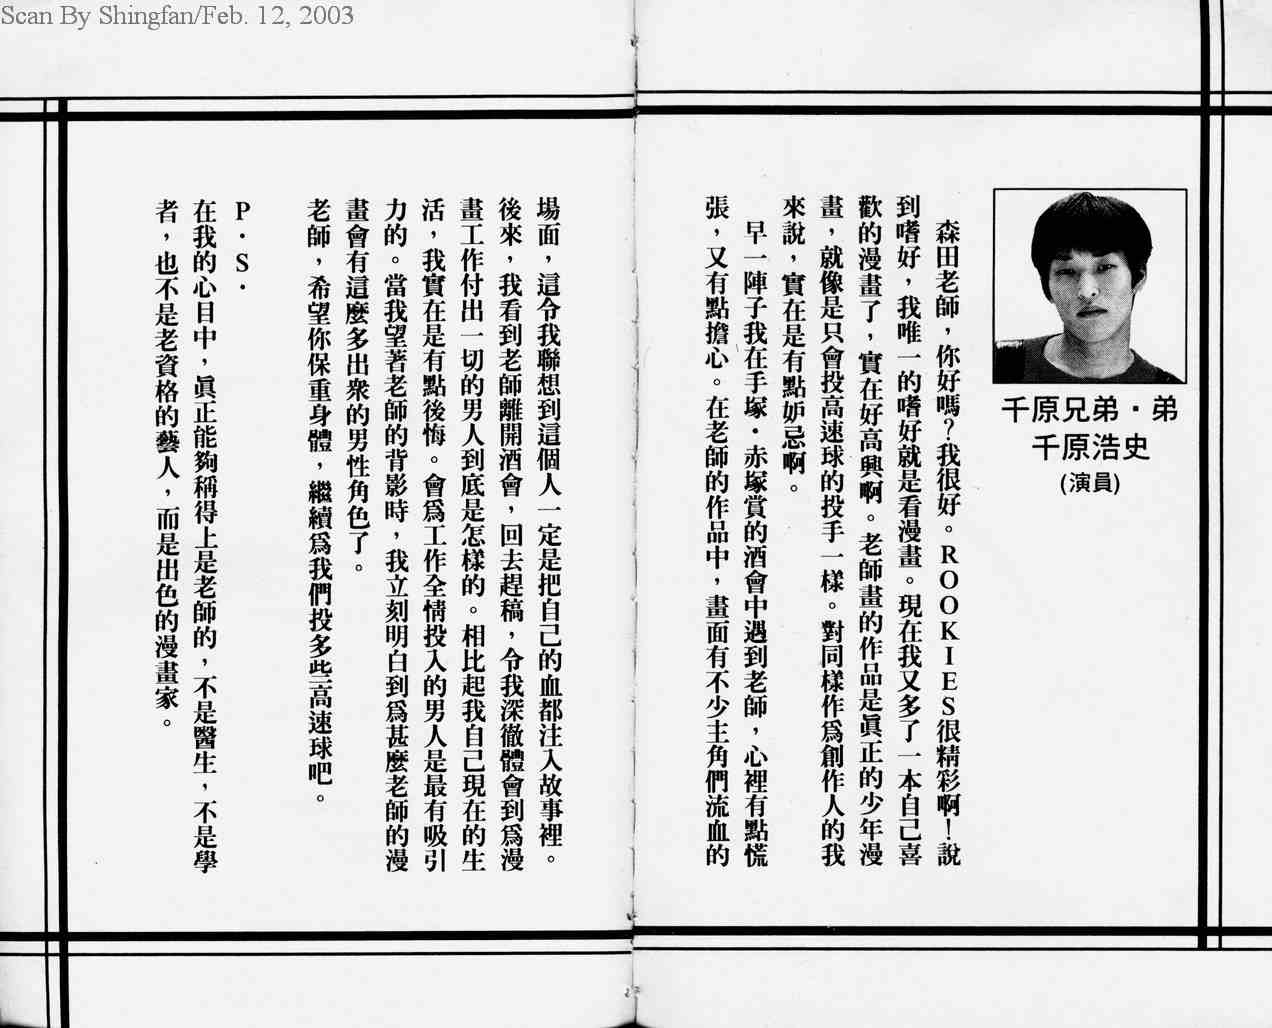 Scan By Shingfan/Feb. 12, 2003
千原兄弟・弟
千原浩史
(演員)
森田老師，你好嗎？我很好。ROOKIES很精彩啊！說
到嗜好，我唯一的嗜好就是看漫畫。現在我又多了一本自己喜
歡的漫畫了，實在好高興啊。老師畫的作品是眞正的少年漫
畫，就像是只會投高速球的投手一樣。對同樣作爲創作人的我
來說，實在是有點妒忌啊。
早一陣子我在手塚・赤塚賞的酒會中遇到老師，心裡有點慌
張，又有點擔心。在老師的作品中，畫面有不少主角們流血的
場面，這令我聯想到這個人一定是把自己的血都注入故事裡。
後來，我看到老師離開酒會，回去趕稿，令我深徹體會到爲漫
畫工作付出一切的男人到底是怎樣的。相比起我自己現在的生
活，我實在是有點後悔。會爲工作全情投入的男人是最有吸引
力的。當我望著老師的背影時，我立刻明白到爲甚麼老師的漫
畫會有這麼多出衆的男性角色了。
老師，希望你保重身體，繼續爲我們投多些高速球吧。
P・S・
在我的心目中，眞正能夠稱得上是老師的，不是醫生，不是學
者，也不是老資格的藝人，而是出色的漫畫家。